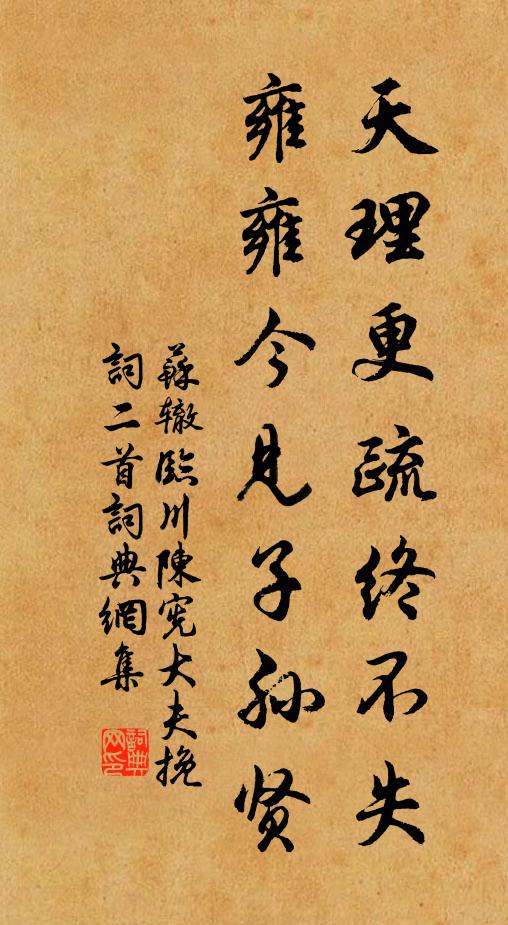 天理更疏终不失
雍雍今见子孙贤
蘇辙臨川陳宪大夫挽
詞二首詞典網集
詞典网印